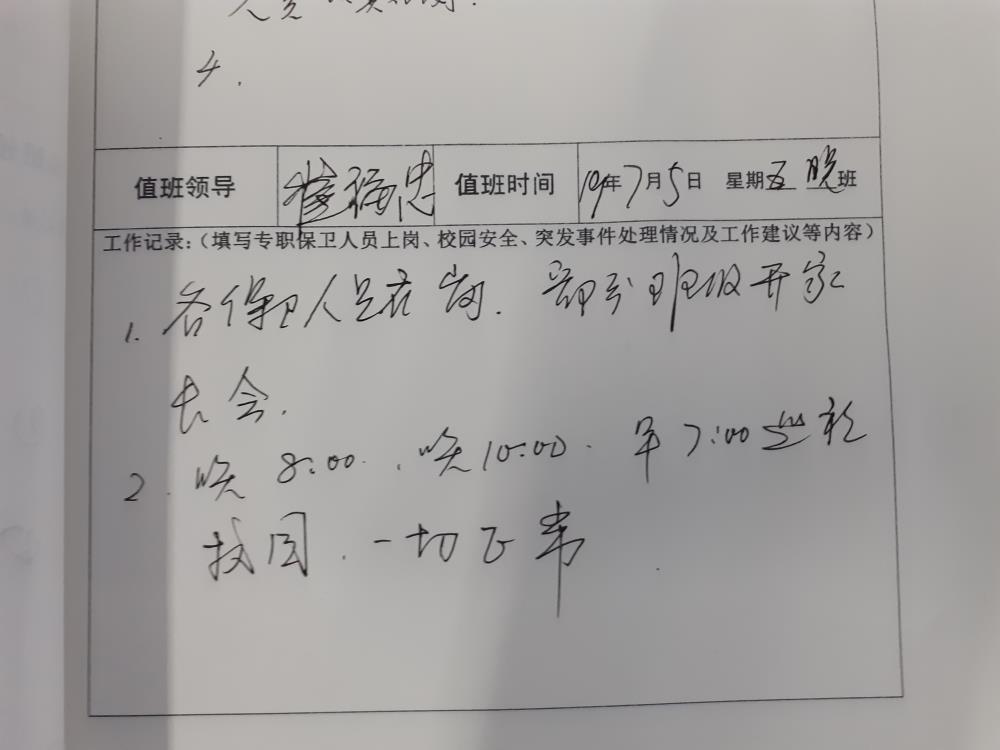 4.
值班领导 崔福忠 值班时间 19年7月5日 星期五 晚班
工作记录:(填写专职保卫人员上岗、校园安全、突发事件处理情况及工作建议等内容)
1. 各保卫人员在岗. 部分班级开家
长会.
2. 晚8:00、晚10:00. 早7:00巡视
校园. 一切正常